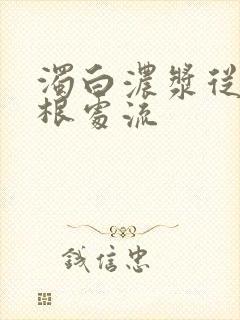 濁白濃漿從
根處流
钱信忠